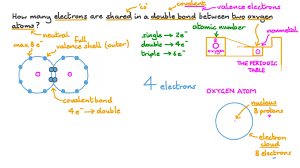 "co" covalent valence electrons
How many electrons are shared in a double bond between two oxygen
atoms?
neutral
max 8 e⁻ full
valence shell (outer)
single → 2e⁻
double → 4e⁻
triple → 6e⁻
atomic number
nonmetal
8
O
oxygen
THE PERIODIC
TABLE
O
O
covalent bond
4 e⁻ → double
4 electrons
OXYGEN ATOM
nucleus
8 protons
electron
cloud
8 electrons